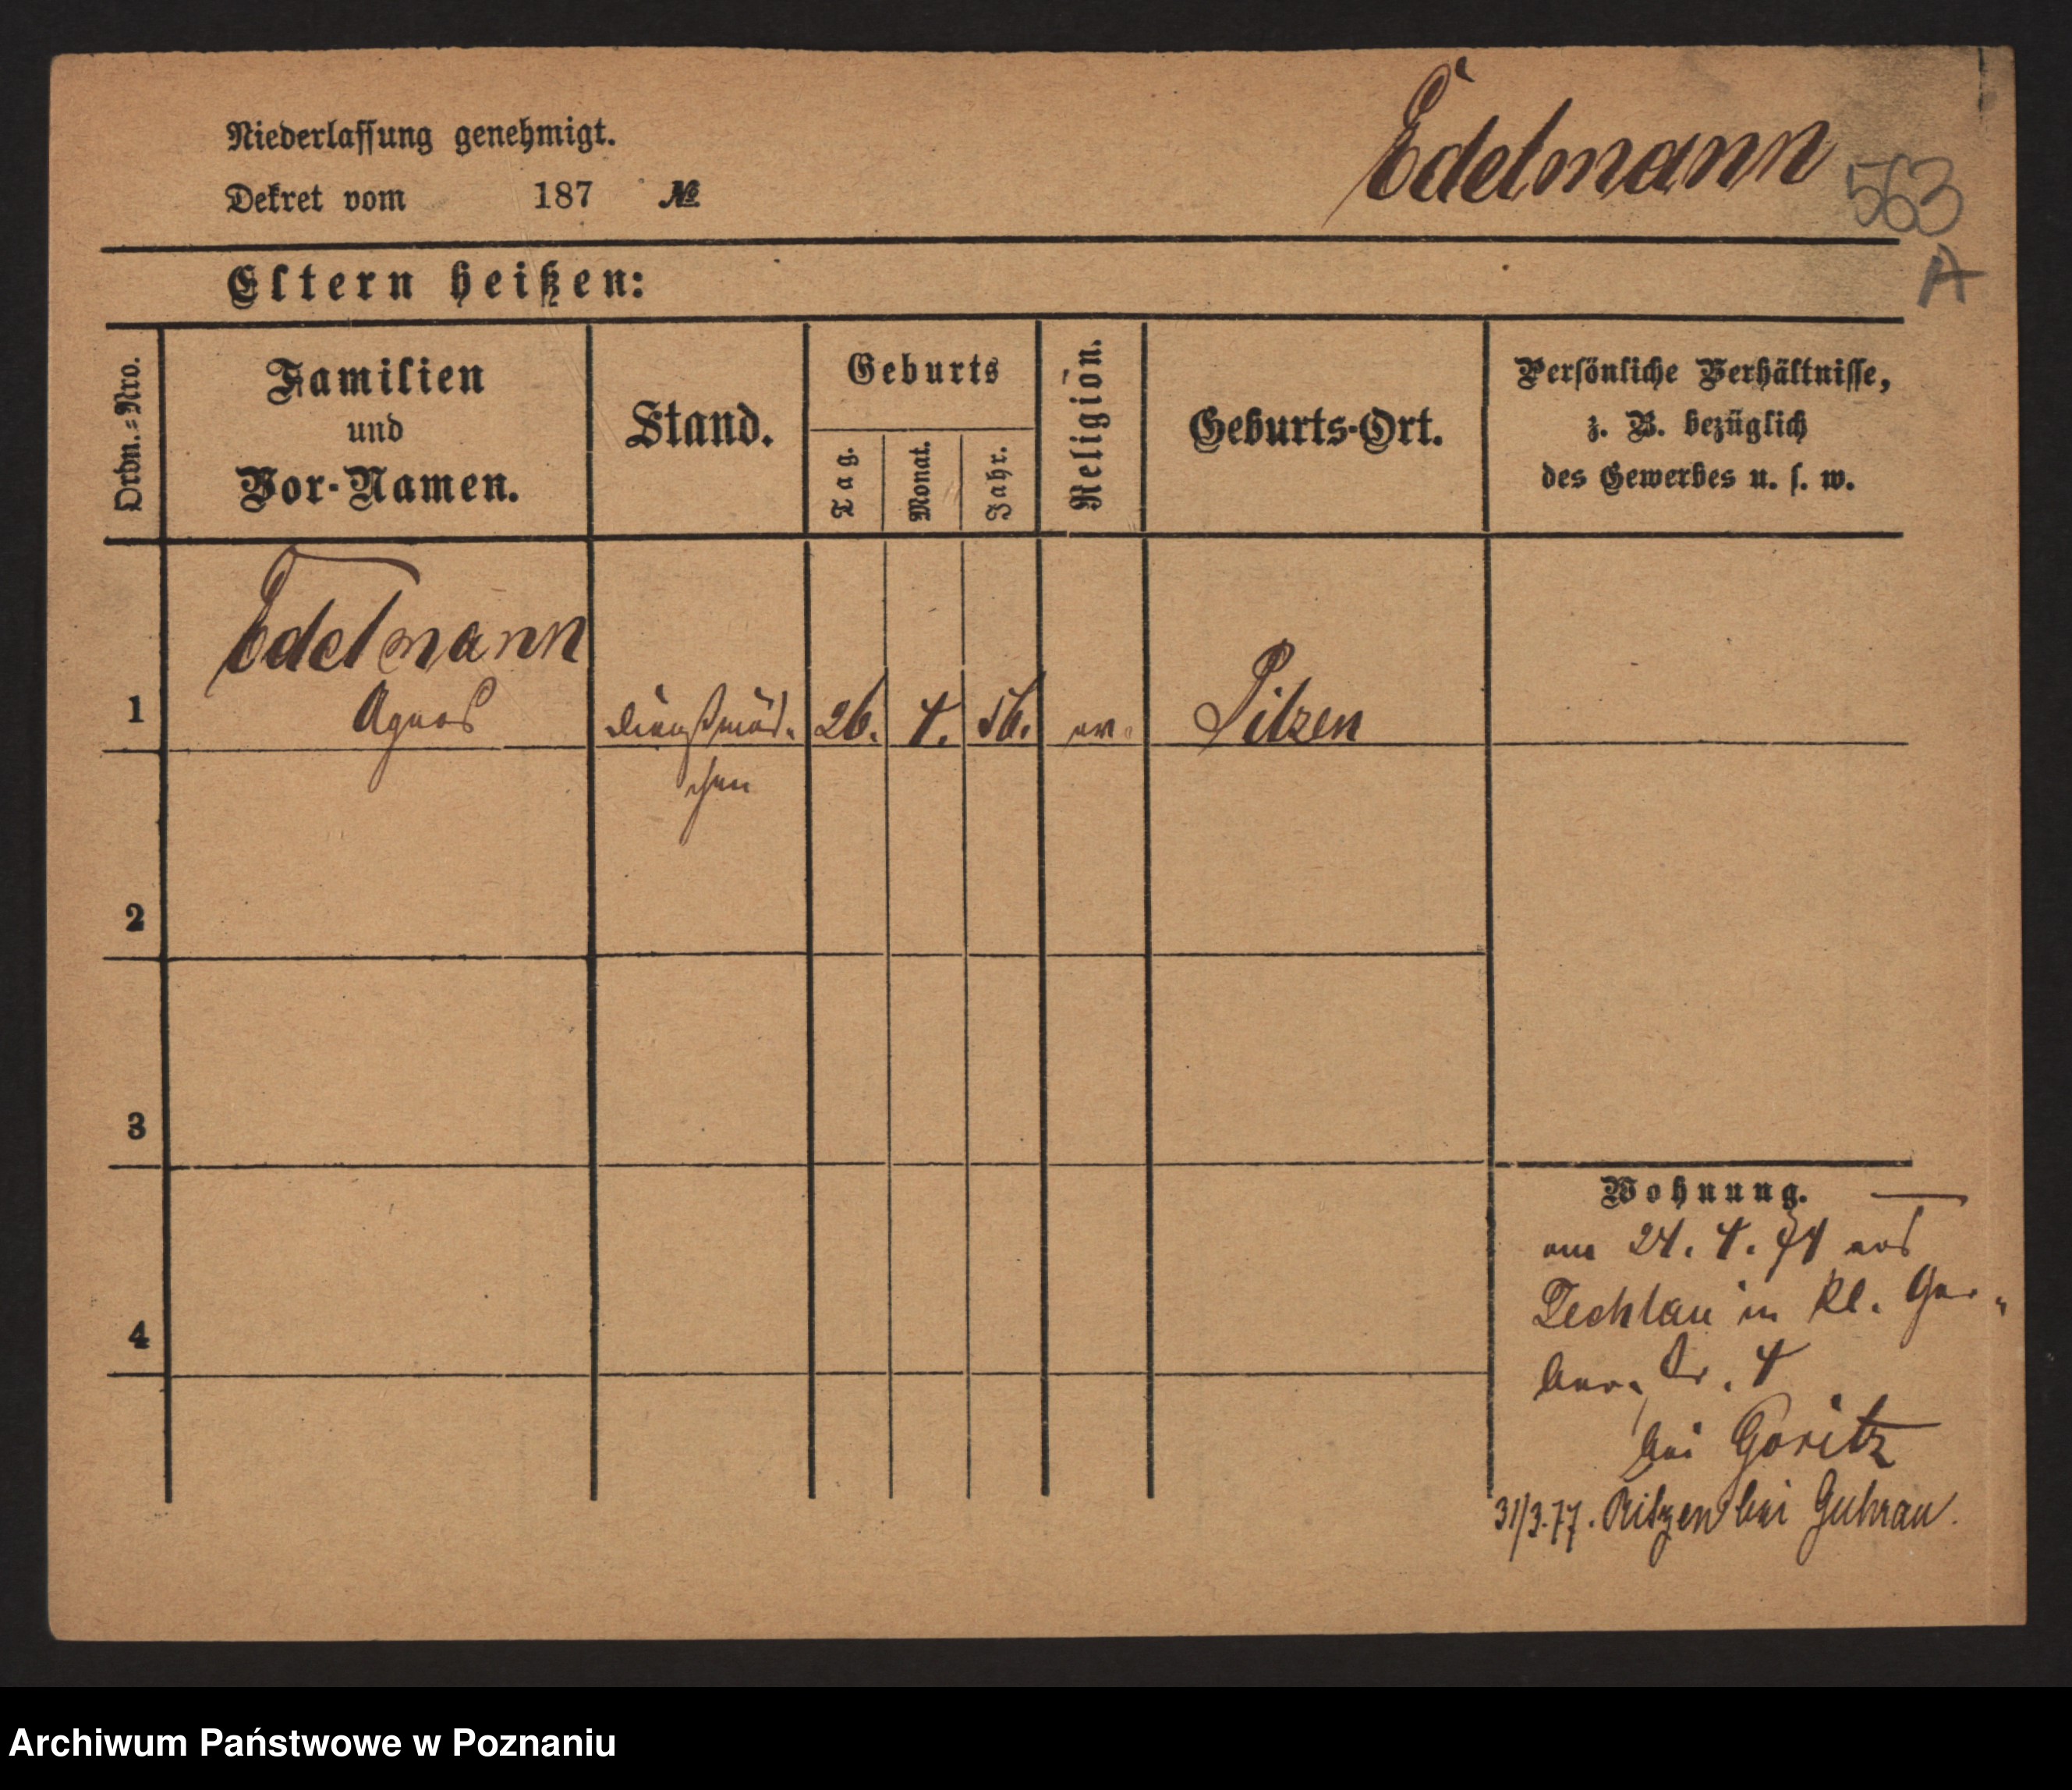 Niederlassung genehmigt.
Dekret vom 187 №
Edelmann
563
A
Eltern heißen:
Ordn.=Nro.
Familien
und
Vor-Namen.
Stand.
Geburts
Tag.
Monat.
Jahr.
Religion.
Geburts-Ort.
Persönliche Verhältnisse,
z. B. bezüglich
des Gewerbes u. s. w.
Edelmann
1 Agnes Dienstmäd- 26. 4. 56. ev. Pilzen
chen
2
3
4
Wohnung.
am 24. 4. 74 aus
Techlau in Kl. Ger-
ber- Str. 4
bei Goritz
31/3.77. Ritzen bei Guhrau.
Archiwum Państwowe w Poznaniu